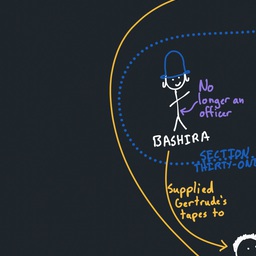 No
longer an
officer
BASHIRA
SECTION
THIRTY-ONE
Supplied
Gertrude's
tapes to